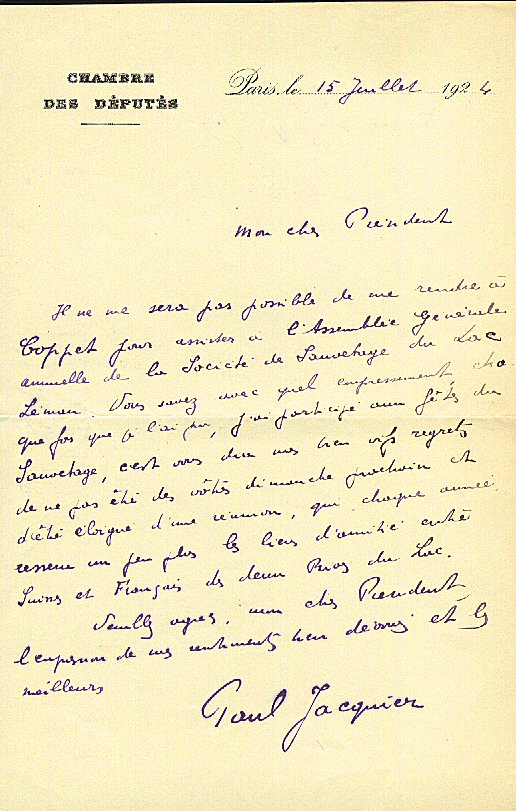 CHAMBRE
DES DÉPUTÉS
Paris, le 15 Juillet 1924
Mon cher Président
Il ne me sera pas possible de me rendre à
Coppet pour assister à l'Assemblée Générale
annuelle de la Société de Sauvetage du Lac
Léman. Vous savez avec quel empressement cha-
que fois que je l'ai pu, j'ai participé aux fêtes du
Sauvetage, c'est vous dire mes bien vifs regrets
de ne pas être des vôtres dimanche prochain et
d'être éloigné d'une réunion, qui, chaque année,
resserre un peu plus les liens d'amitié entre
Suisses et Français des deux Rives du Lac.
Veuillez agréer, mon cher Président,
l'expression de mes sentiments bien dévoués et les
meilleurs
Paul Jacquier